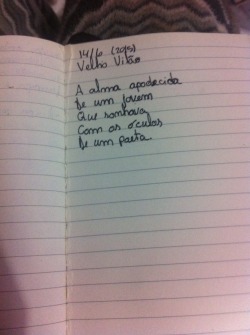 14/6 (2015)
Velho Vitor
A alma apodrecida
De um jovem
Que sonhava
Com os óculos
De um poeta